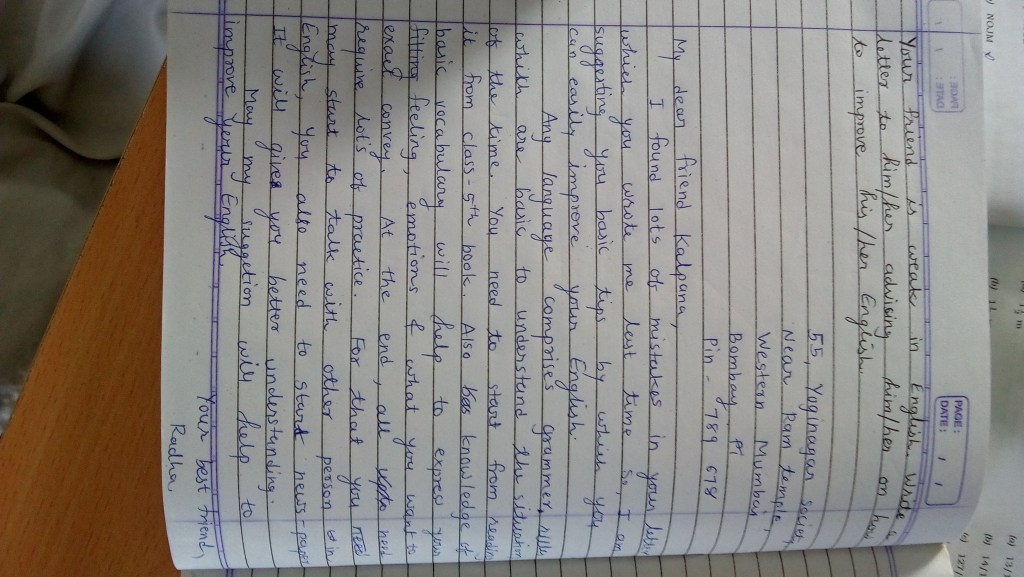 PAGE:
DATE:
Your friend is weak in English. Write a
letter to him/her advising him/her on how
to improve his/her English.
55, Yoginagar society
Near Ram temple,
Western Mumbai
Bombay,
Pin - 789 678
My dear friend Kalpana,
I found lots of mistakes in your letter
which you wrote me last time. So, I am
suggesting you basic tips by which you
can easily improve your English.
Any language comprises grammer,
which are basic to understand the situation
of the time. You need to start from reading
it from class-5th book. Also knowledge of
basic vocabulary will help to express your
fitting feeling, emotions & what you want to
exact convey. At the end, all need
require lots of practice. For that you need
may start to talk with other person in
English, you also need to start news-paper
It will give you better understanding.
May my suggetion will help to
improve your English.
Your best friend,
Radha